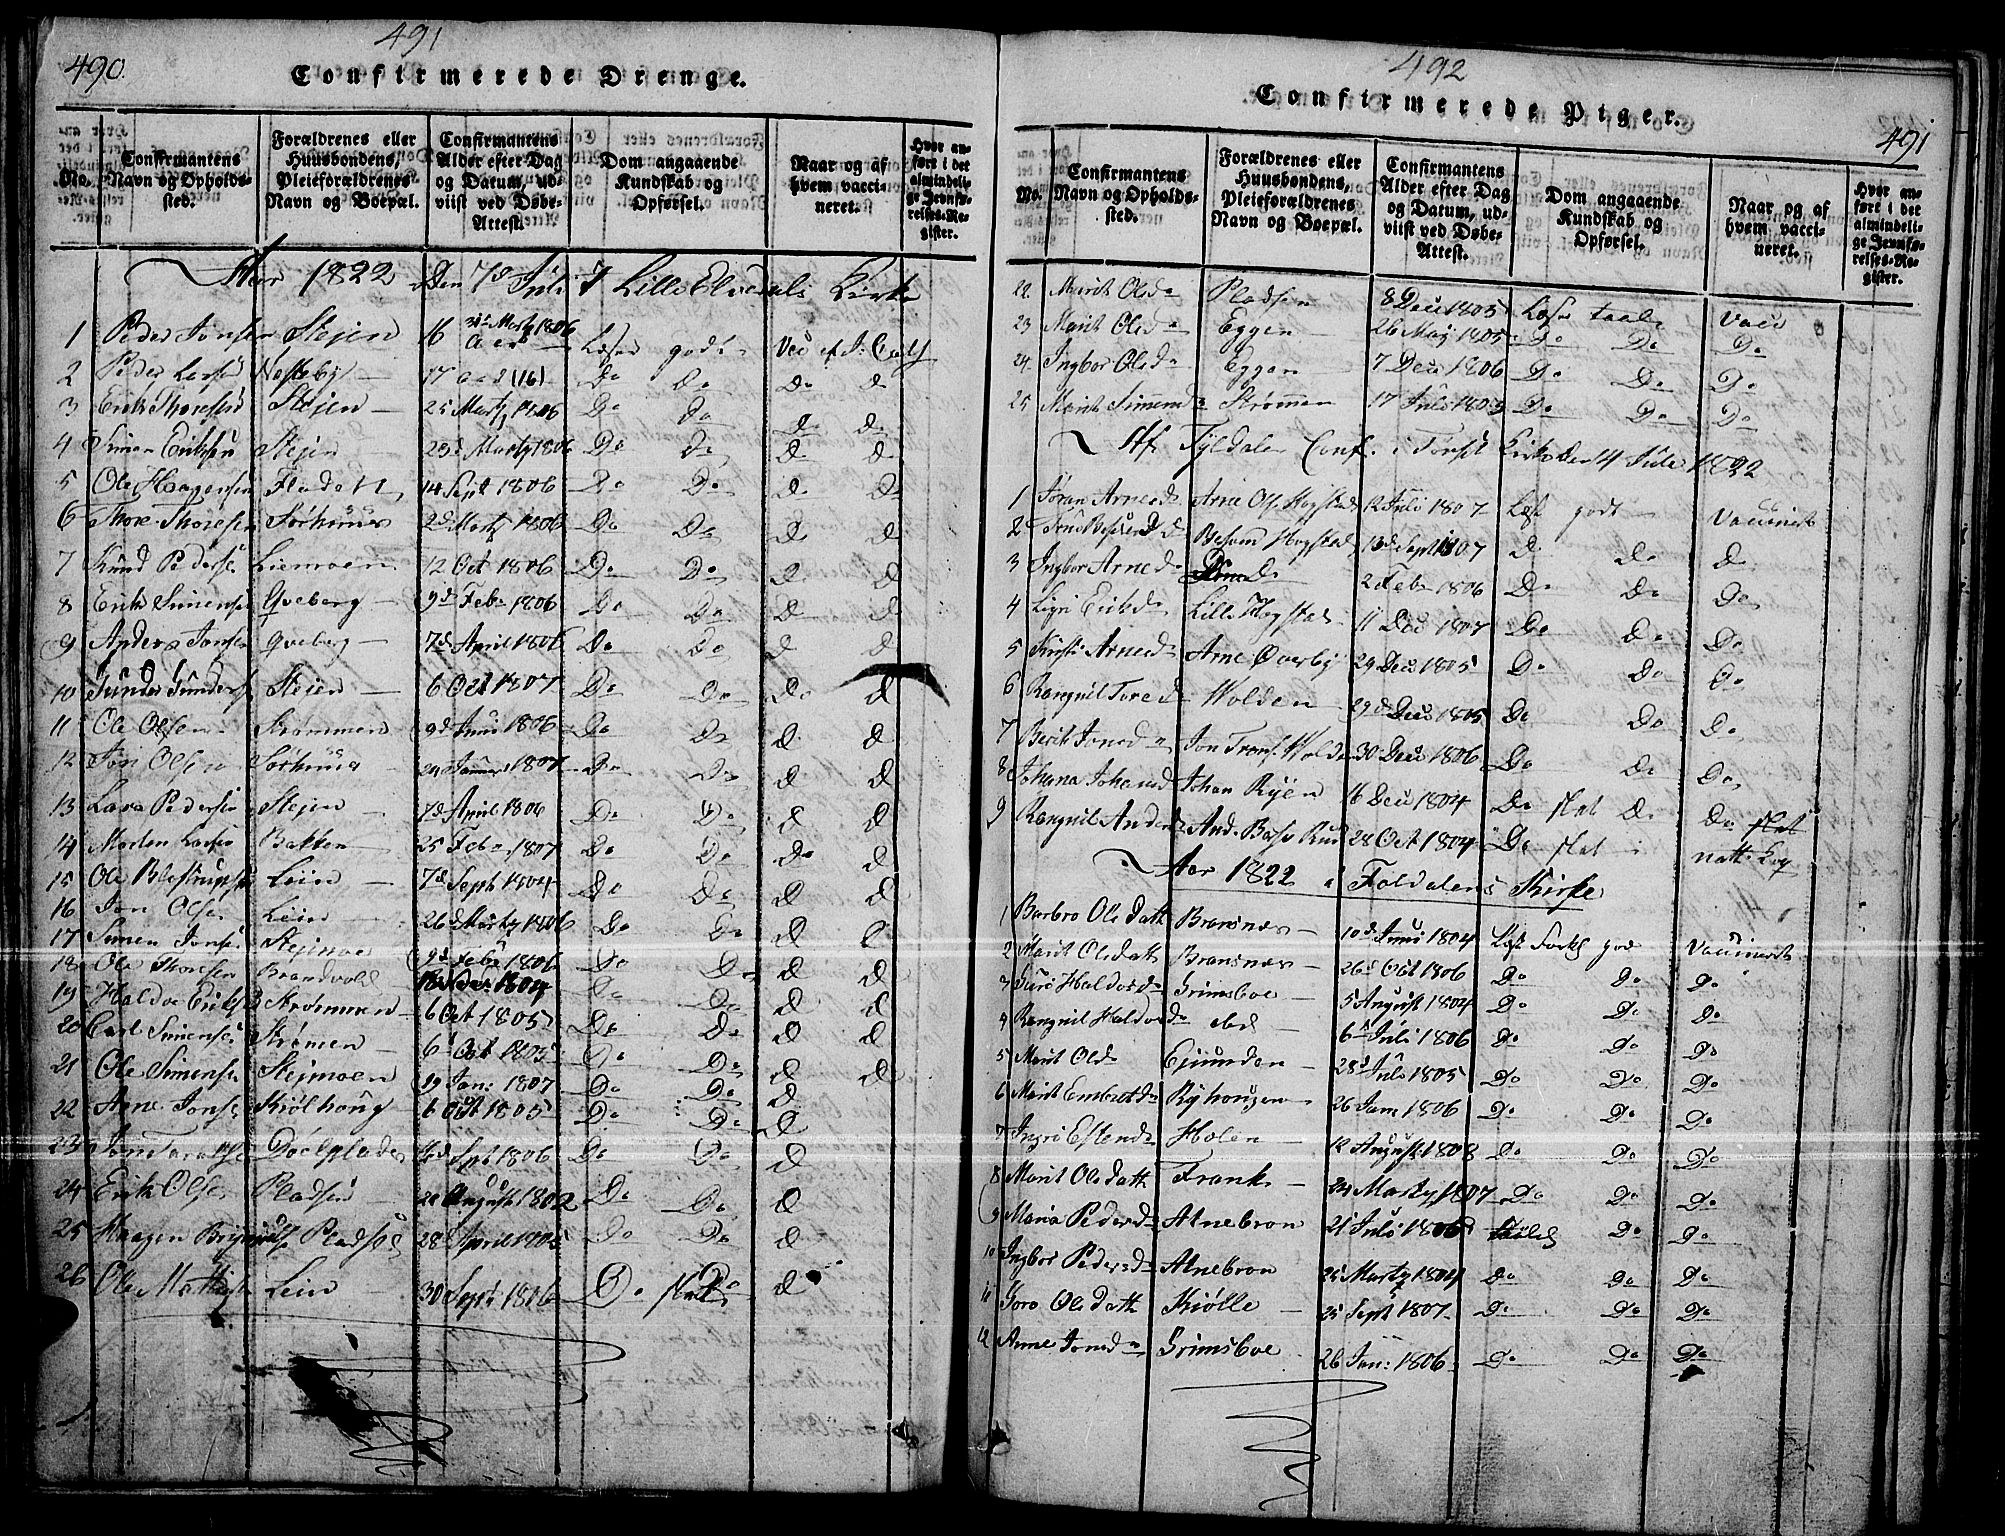 490.
491
Confirmerede Drenge.
No.
Confirmantens Navn og Opholdssted.
Forældrenes eller Huusbondens, Pleieforældrenes Navn og Boepæl.
Confirmantens Alder efter Dag og Datum, udviist ved Døbe-Attest.
Dom angaaende Kundskab og Opførsel.
Naar og af hvem vaccineret.
Hvor anført i det almindelige Jevnførelses-Register.
Aar 1822 Den 7d Juli I Lille Elvedals Kirke
1 Peder Jonsen Stejen 16 31d Marty 1806 Læser godt
2 Peder Larsen 17 (16) Do Do Do D
3 Erik Thoresen Stejen 25 Marty 1806 Do Do D D
4 Simen Eriksen Stejen 23d Marty 1806 Do Do D D
5 Ole Haagensen 14 Sept 1806 Do Do D D
6 Thore Thoresen Sørhuus 2d Marty 1806 Do Do D D
7 Knud Pedersen Liemoen 12 Oct 1806 Do Do D D
8 Erik Simensen Qveberg 9d Feb 1806 Do Do D D
9 Anders Jonsen Qveberg 7d April 1806 Do Do D D
10 Stejen 6 Oct 1807 Do Do Do D
11 Ole Olsen Strømmen 9d Juni 1806 Do Do D D
12 Jon Olsen Sørhuus 24 Januar 1807 Do Do D D
13 Lars Pedersen Stejen 7d April 1806 Do Do D D
14 Morten Larsen Bakken 25 Feb 1807 Do Do Do D
15 Ole Lein 7d Sept 1804 Do Do D D
16 Jon Olsen Lein 26d Marty 1806 Do Do D D
17 Simen Jonsen Stejmoe 9d Feb 1806 Do Do D D
18 Ole Thoresen Brandvold 1804 Do Do D D
19 Haldo Eriksen Strømmen 6 Oct 1805 Do Do D D
20 Carl Simensen Strømen 6 Oct 1805 Do Do D D
21 Ole Simensen Stejmoen 29 Jan: 1807 Do Do D
22 Arne Jonsen Kiølhoug 6 Oct 1805 Do Do D
23 Jon 1806 Do Do
24 Erik Olsen Pladsen August 1802 Do Do D
25 Haagen Pladsen 28 April 1805 Do Do D
26 Ole Lein 30 Sept 1806 Do D
492
491
Confirmerede Piger.
No.
Confirmantens Navn og Opholdssted.
Forældrenes eller Huusbondens, Pleieforældrenes Navn og Boepæl.
Confirmantens Alder efter Dag og Datum, udviist ved Døbe-Attest.
Dom angaaende Kundskab og Opførsel.
Naar og af hvem vaccineret.
Hvor anført i det almindelige Jevnførelses-Register.
22. Marit Olsda Pladsen 8 Dec 1805 Læser taale Vacc
23 Marit Olsda Eggen 26 May 1805 Do Do Do
24. Ingbor Olsda Eggen 7 Dec 1806 Do Do Do
25 Marit Simensda Strømmen 17 Juli 1803 Do Do Do
Af Tyldalen Conf. i Tønset Kirke den 14 Julii 1822
1 Jøran Arnesda Arne Ols Hogstad 12 Juli 1807 Læst godt Vaccineret
2 Hogstad 13d Sept 1807 D Do D
3 Ingbor Arnesda Do 2 Feb 1806 Do Do Do
4 Sigri Eriksda Lille Hogstad 11 Dec 1807 Do Do Do
5 Kirsti Arnesd Arne Overby 29 Dec 1805 Do Do Do
6 Rangnil Tored Wolden 29d Dec 1805 Do Do Do
7 Berit Jonsda Jon Wolden 30 Dec 1806 Do Do Do
8 Johana Johansd Johan Ryen 16 Dec 1804 Do slet D Do slet
9 Rangnil Andersd And. Rud 28 Oct 1804 Do slet i nat. Kop
Aar 1822 Foldalens Kirke
1 Barbro Olsdath Brænsnes 10d Juni 1804 Læst god Vaccineret
2 Marit Olsdatt Brænsnes 26d Oct 1806 Do Do Do
3 Guro Haldorsda Grimsboe 5 August 1804 Do Do Do
4 Rangnil Haldorsda 6 Juli 1806 Do Do Do
5 Marit Olsda 28d Juli 1805 Do Do Do
6 Marit Embretsda Ryhougen 26 Jan 1806 Do Do Do
7 Ingrø Estensda Holen 12 August 1808 Do Do Do
8 Marit Olsdath Frank 24 Marty 1807 Do Do Do
9 Maria Pedersda Alnebron 21 Juli 1806 Do Do
10 Ingbor Pedersda Alnebron 25 Marty 1804 Do Do Do
11 Goro Olsdath Kiølle 25 Sept 1807. Do Do Do
12 Anne Jonsda Grimsboe 26 Jan: 1806 Do Do Do